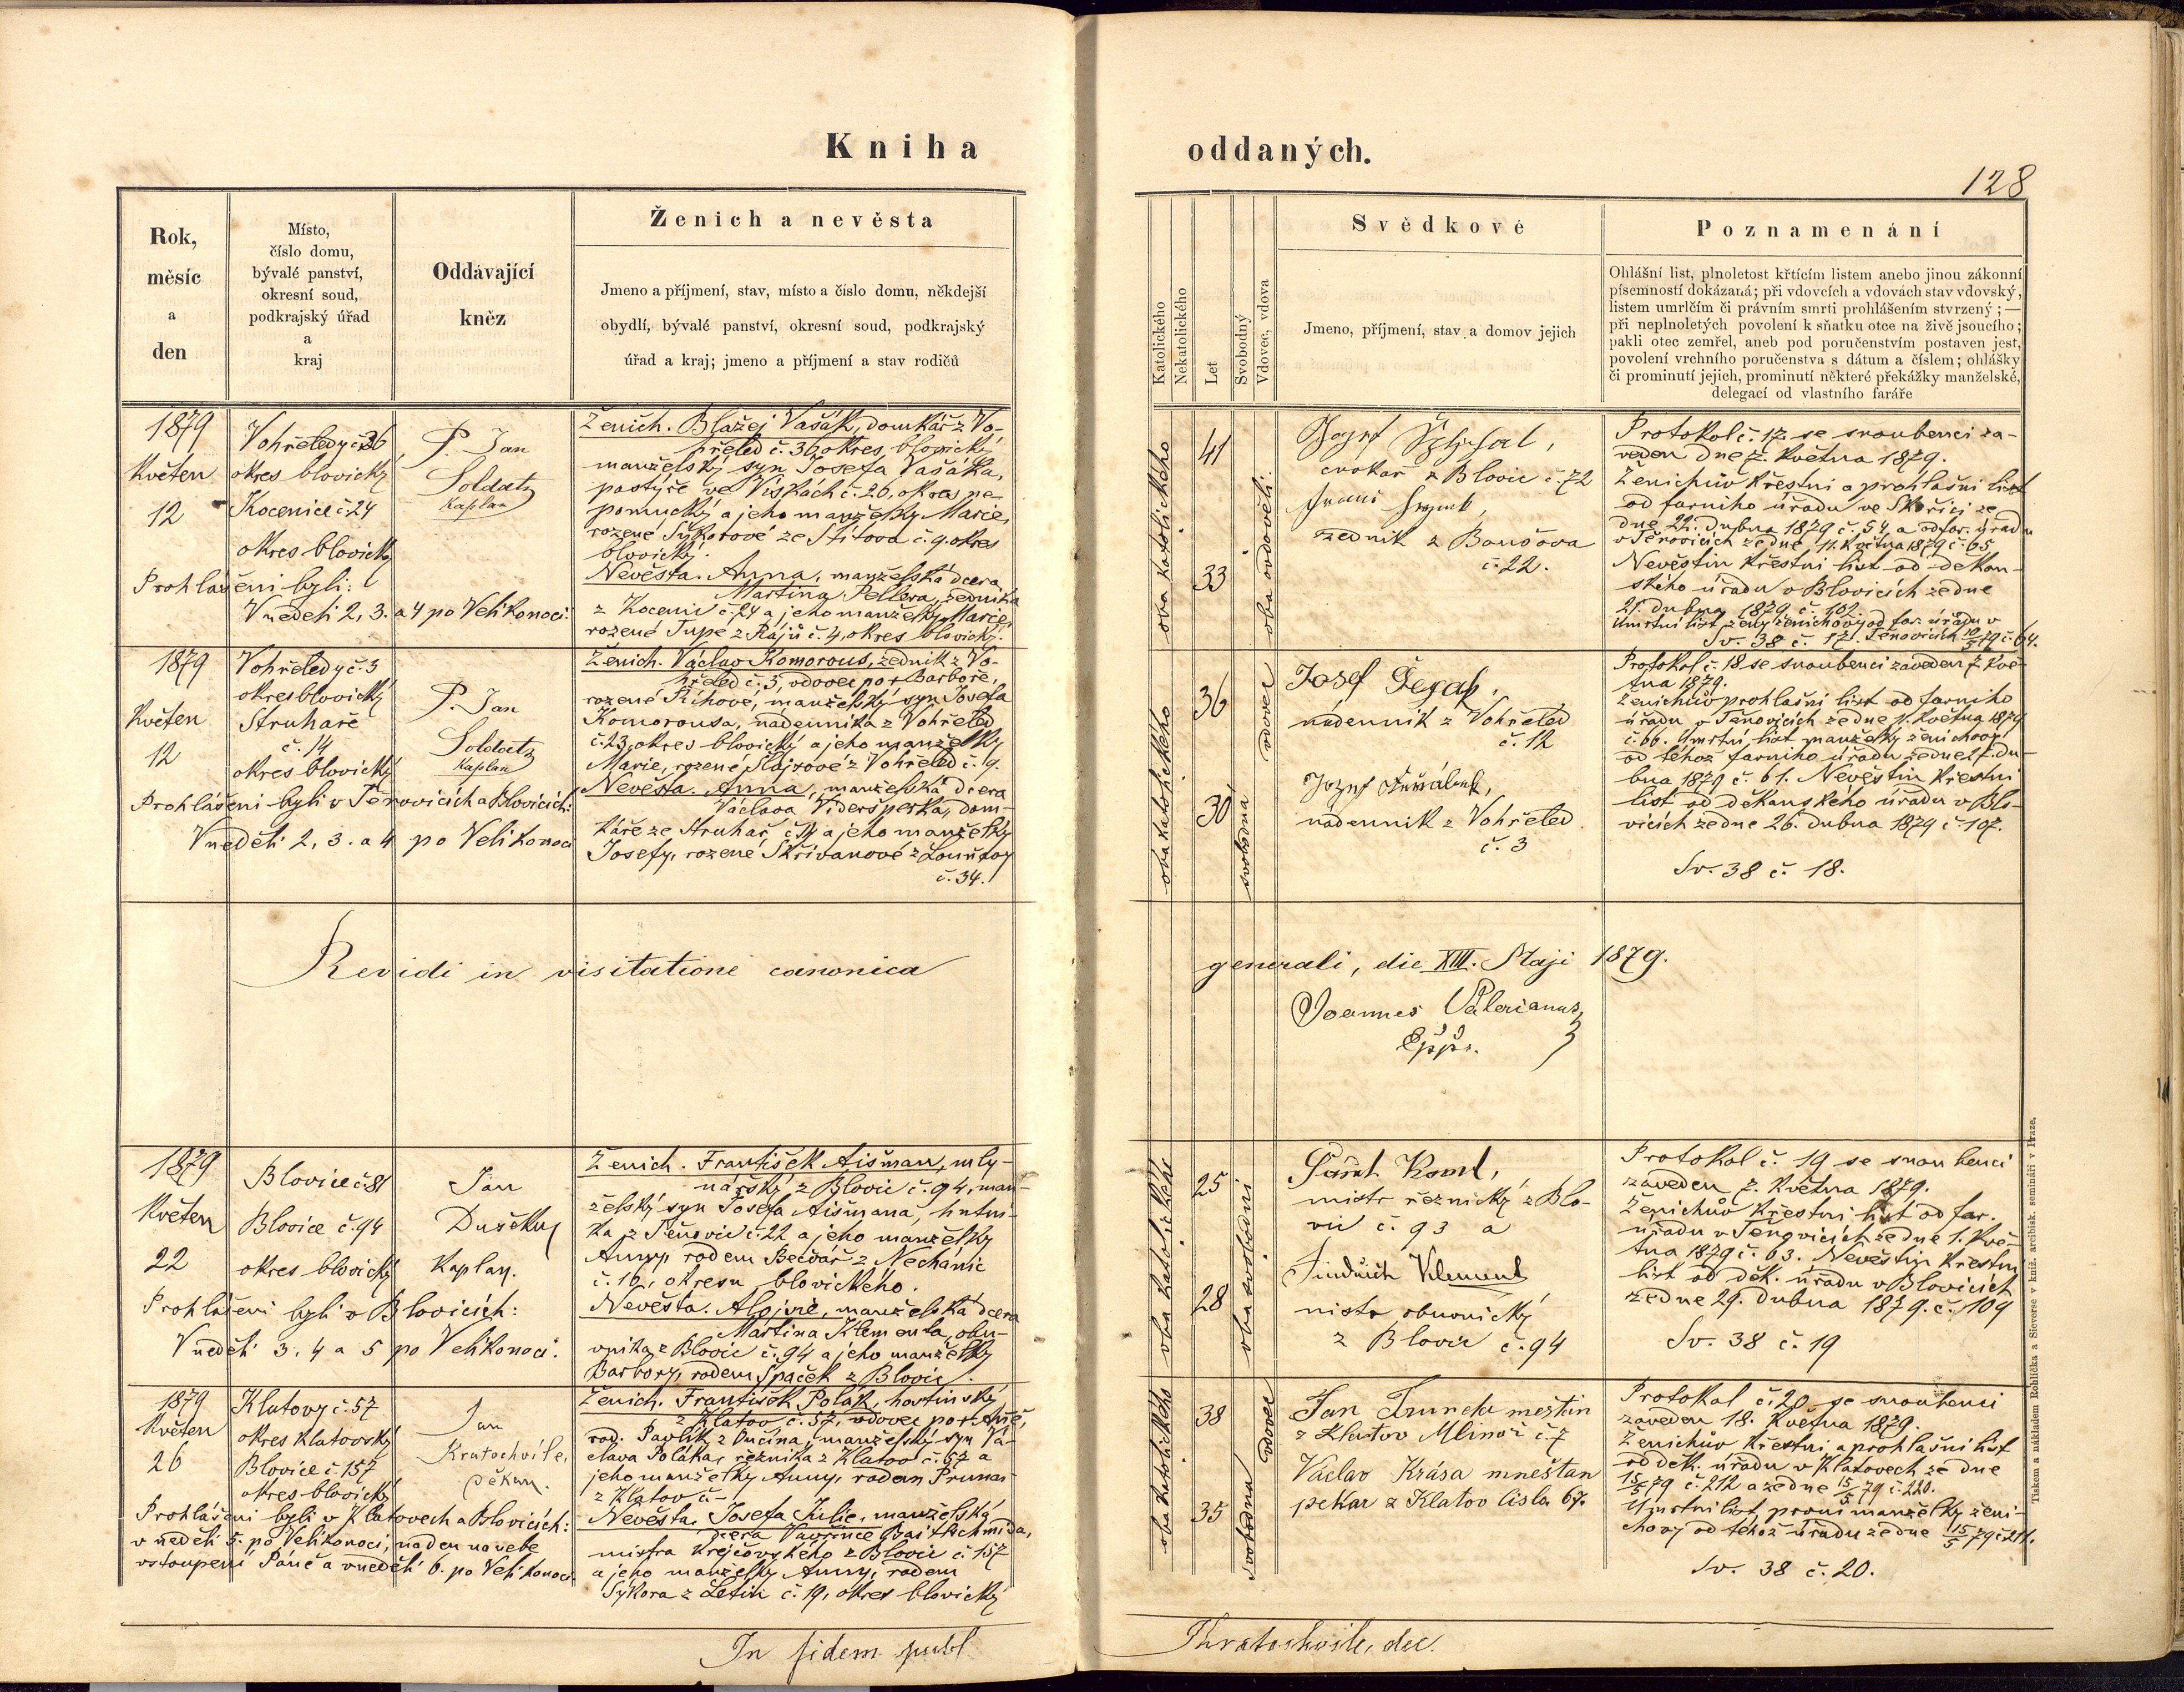 Kniha
oddaných.
128
Rok,
měsíc
a
den
Místo,
číslo domu,
bývalé panství,
okresní soud,
podkrajský úřad
a
kraj
Oddávající
kněz
Ženich a nevěsta
Jmeno a příjmení, stav, místo a číslo domu, někdejší
obydlí, bývalé panství, okresní soud, podkrajský
úřad a kraj; jmeno a příjmení a stav rodičů
Katolického
Nekatolického
Let
Svobodný
Vdovec, vdova
Svědkové
Jmeno, příjmení, stav a domov jejich
Poznamenání
Ohlášní list, plnoletost křtícím listem anebo jinou zákonní
písemností dokázaná; při vdovcích a vdovách stav vdovský,
listem umrlčím či právním smrti prohlášením stvrzený;—
při neplnoletých povolení k sňatku otce na živě jsoucího;
pakli otec zemřel, aneb pod poručenstvím postaven jest,
povolení vrchního poručenstva s dátum a číslem; ohlášky
či prominutí jejich, prominutí některé překážky manželské,
delegací od vlastního faráře
1879
Květen
12
Vohřeledy č. 36
okres blovický
Kocenice č. 24
okres blovický
Prohlášeni byli:
V neděli 2, 3. a 4 po Velikonoci.
P. Jan
Soldatz
Kaplan
Ženich. Blažej Vašák, domkář z Vo-
hřeled č. 36, okres blovický
manželský syn Josefa Vašáka,
pastýře ve Vískách č. 26, okres ne-
pomucký a jeho manželky Marie,
rozené Sýkorové ze Štítova č. 9. okres
blovický.
Nevěsta. Anna, manželská dcera
Martina Pellera, zedníka
z Kocenic č. 24 a jeho manželky Marie,
rozené Tupe z Rájů č. 4, okres blovický.
oba katolického
41
33
oba ovdověli.
cvokař z Blovic č. 72
zedník z
č. 22.
Protokol č. 17 se snoubenci za-
veden dne 7. května 1879.
Ženichův křestní a prohlášní list
od farního úřadu ve Skořici ze
dne 22. dubna 1879 č. 54 a od far. úřadu
v Těnovicích ze dne 11. Května 1879 č. 65
Nevěstin křestní list od děkan-
ského úřadu v Blovicích ze dne
21. dubna 1879 č. 102.
Úmrtní list ženy ženichovy od far. úřadu v
Sv. 38 č. 17. Těnovicích 10/5 79 č. 64.
1879
Květen
12
Vohřeledy č. 3
okres blovický
Struhaře
č. 14
okres blovický
Prohlášeni byli v Těnovicích a Blovicích:
V neděli 2, 3. a 4 po Velikonoci
P. Jan
Soldatz
Kaplan
Ženich. Václav Komorous, zedník z Vo-
hřeled č. 3, vdovec po + Barboře,
rozené Říhové, manželský syn Josefa
Komorousa, nádenníka z Vohřeled
č. 23, okres blovický a jeho manželky
Marie, rozené Šlajsové z Vohřeled č. 9.
Nevěsta. Anna, manželská dcera
Václava Vidersperka, dom-
káře ze Struhař č. 14 a jeho manželky
Josefy, rozené Skřivanové z Louňov
č. 34.
oba katolického
36
30
vdovec
svobodna
Josef
nádenník z Vohřeled
č. 12
nádenník z Vohřeled
č. 3
Protokol č. 18 se snoubenci zaveden 7. kvě-
tna 1879.
Ženichův prohlášní list od farního
úřadu v Těnovicích ze dne 11. Května 1879
č. 66. Úmrtní list manželky ženichovy
od téhož farního úřadu ze dne 27. du-
bna 1879 č. 61. Nevěstin křestní
list od děkanského úřadu v Blo-
vicích ze dne 26. dubna 1879 č. 107.
Sv. 38 č. 18.
Revidi in visitatione canonica
generali, die XIII. Maji 1879.
Joannes Valerianus
Eppus.
1879
Květen
22
Blovice č. 81
Blovice č. 94
okres blovický
Prohlášeni byli v Blovicích:
V neděli 3. 4 a 5 po Velikonoci.
Jan
Dušek
Kaplan.
Ženich. František Aišman, mly-
nářský z Blovic č. 94, man-
želský syn Josefa Aišmana, hutní-
ka z Těnovic č. 22 a jeho manželky
Anny, rodem Bečvář z Nechánic
č. 16, okresu blovického.
Nevěsta. Aloisie, manželská dcera
Martina Klementa, obu-
vníka z Blovic č. 94 a jeho manželky
Barbory, rodem Špaček z Blovic.
oba katolického
25
28
oba svobodni
mistr řeznický z Blo-
vic č. 93 a
Jindřich Klement
mistr obuvnický
z Blovic č. 94
Protokol č. 19 se snoubenci
zaveden 7. Května 1879.
Ženichův křestní list od far.
úřadu v Těnovicích ze dne 1. Kvě-
tna 1879 č. 63. Nevěstin křestní
list od děk. úřadu v Blovicích
ze dne 29. dubna 1879. č. 109
Sv. 38 č. 19
1879
Květen
26
Klatovy č. 57
okres Klatovský
Blovice č. 157
okres blovický
Prohlášeni byli v Klatovech a Blovicích:
v neděli 5. po Velikonoci, na den na nebe
vstoupení Páně a v neděli 6. po Velikonoci
Jan
Kratochvíle,
děkan.
Ženich. František Polák, hostinský
z Klatov č. 57, vdovec po + Anně,
rod. Pavlík z Ončína, manželský syn Vá-
clava Poláka, řezníka z Klatov č. 67 a
jeho manželky Anny, rodem Prunar
z Klatov č.—
Nevěsta. Josefa Julie, manželská
dcera Vavřince Baitschmida,
mistra krejčovského z Blovic č. 157
a jeho manželky Anny, rodem
Sýkora z Letin č. 19, okres blovický
oba katolického
38
35
vdovec
svobodna
Jan Trunda meštin
z Klatov č. 7
Václav Krása mneštan
pekar z Klatov čislo 67.
Protokol č. 20 se snoubenci
zaveden 18. Května 1879.
Ženichův křestní a prohlášní list
od děk. úřadu v Klatovech ze dne
15/5 79 č. 212 a ze dne 15/5 79 č. 220.
Úmrtní list první manželky ženi-
chovy od téhož úřadu ze dne 15/5 79 č. 211.
Sv. 38 č. 20.
In fidem publ
Kratochvíle, dec.
Tiskem a nákladem Rohlíčka a Sieverse v kníž. arcibisk. semináři v Praze.